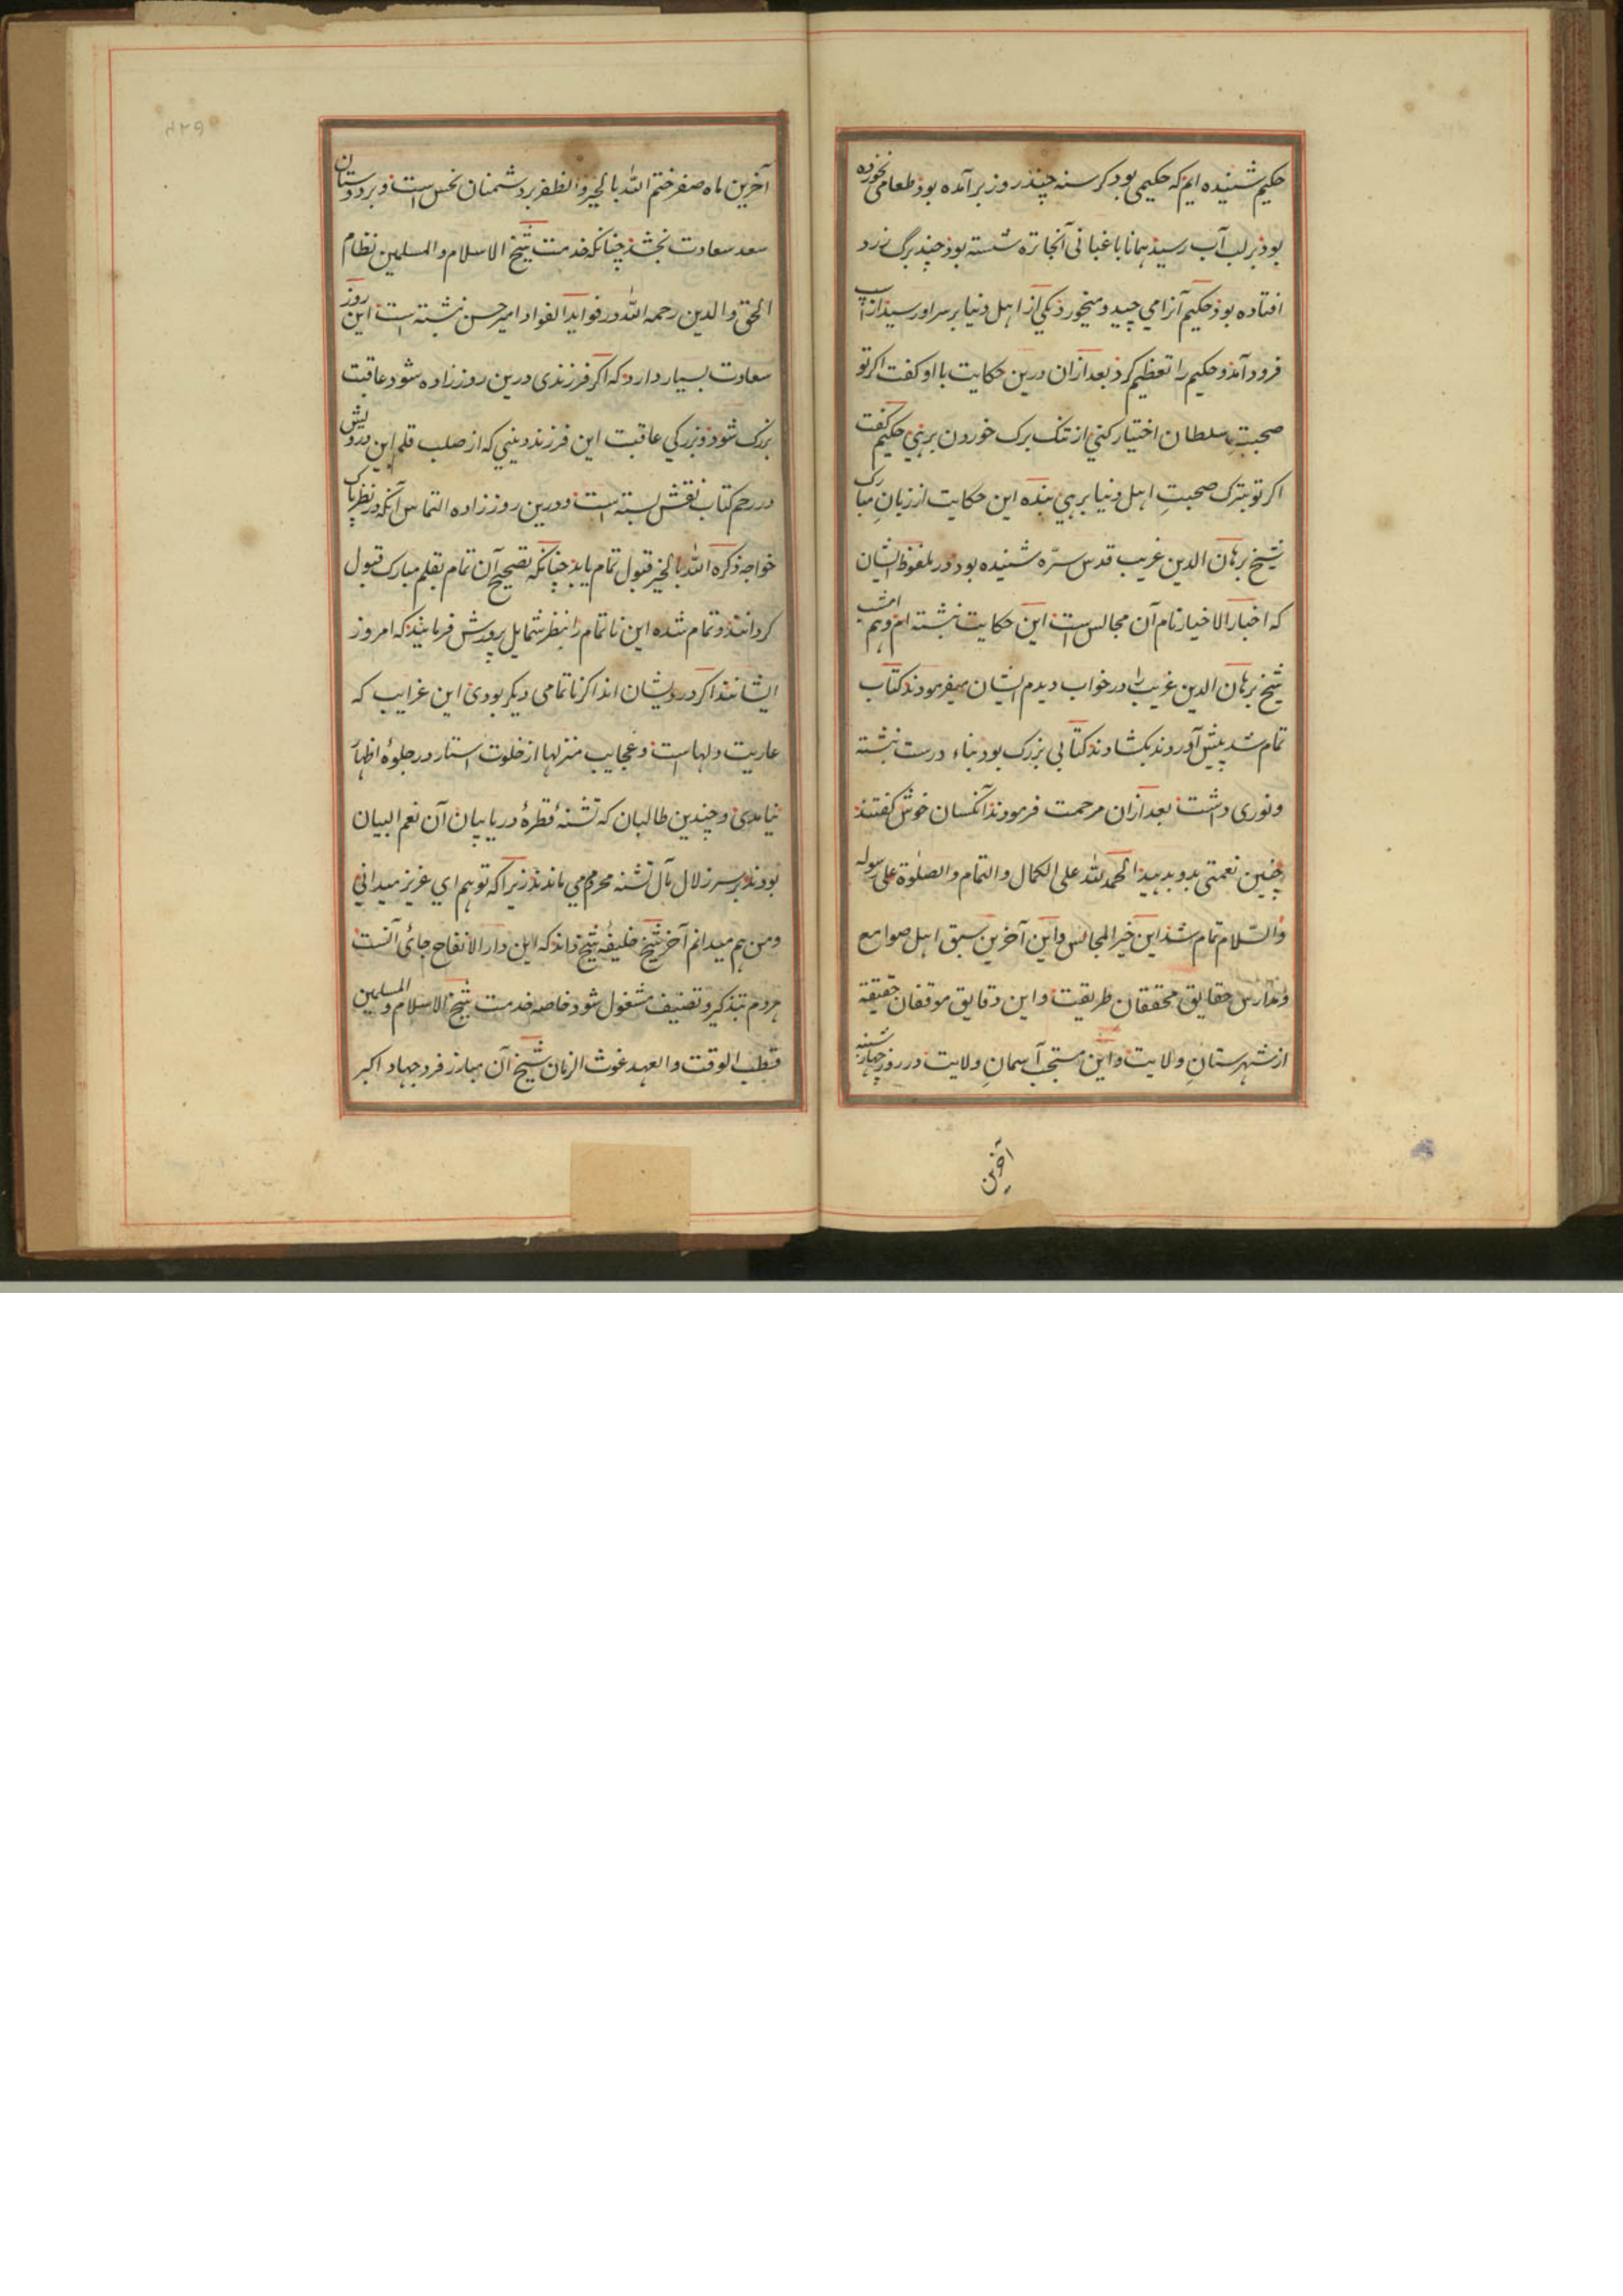 حکیم شنیده ایم که حکیمی بود کرسنه چند روز برآمده بود طعامی نخورده
بود بر لب آب رسید همانا باغبانی آنجا تره شسته بود چند برگ زرد
افتاده بود حکیم آنرا می چید و میخورد یکی از اهل دنیا بر سر او رسید از اسپ
فرود آمد و حکیم را تعظیم کرد بعد ازان درین حکایت با او کفت اکر تو
صحبت سلطان اختیار کنی از تنک برک خوردن برهی حکیم کفت
اکر تو بترک صحبتِ اهل دنیا برهی بنده این حکایت از زبانِ مبارک
شیخ برهان الدین غریب قدس سرّه شنیده بود در ملفوظ ایشان
که اخبار الاخیار نام آن مجالس است این حکایت نبشته ام و هم امشب
شیخ برهان الدین غریب را در خواب دیدم ایشان میفرمودند کتاب
تمام شد پیش آوردند بکشادند کتابی بزرک بود بناء درست نبشته
و نوری داشت بعد ازان مرحمت فرمودند آنکسان خوش کفتند
چنین نعمتی بدو بدهید الحمد لله علی الکمال والتمام والصلوة علی رسوله
والسّلام تمام شد این خیر المجالس و این آخرین سبق اهل صوامع
و مدارس حقایق محققان طریقت و این دقایق موقفان حقیقة
از شهرستانِ ولایت و این مستجب آسمانِ ولایت در روز چهارشنبه
آخرین
آخرین ماه صفر ختم الله بالخیر والظفر بر دشمنان نحس است و بر دوستان
سعد سعادت بخشد چنانکه خدمت شیخ الاسلام والمسلمین نظام
الحق والدین رحمه الله در فواید الفواد امیر حسن نبشته است این روز
سعادت بسیار دارد که اکر فرزندی درین روز زاده شود عاقبت
بزرک شود و بزرکی عاقبت این فرزند دینی که از صلب قلم این درویش
در رحم کتاب نقش بسته است و درین روز زاده التماس آنکه در نظر پاک
خواجه ذکره الله بالخیر قبول تمام یابد چنانکه تصحیح آن تمام بقلم مبارک قبول
کردانند و تمام شده این ناتمام را بنظر شمایل پرورش فرمایند که امروز
ایشانند اکر درویشان اند اکر ناتمامی دیکر بودی این غرایب که
عاریت دلهاست و عجایب منزلها از خلوت استار در جلوهٔ اظهار
نیامدی و چندین طالبان که تشنهٔ قطرهٔ دریا بیان آن نعم البیان
بودند بر سر زلال بآل تشنه محروم می ماندند زیرا که تو هم ای عزیز میدانی
و من هم میدانم آخر شیخ خلیفهٔ شیخ داند که این دار الانفاح جائی آنست
مردم بتذکیر و تصنیف مشغول شود خاصه خدمت شیخ الاسلام والمسلمین
قطب الوقت والعهد غوث الزمان شیخ آن مبارز فرد جهاد اکبر